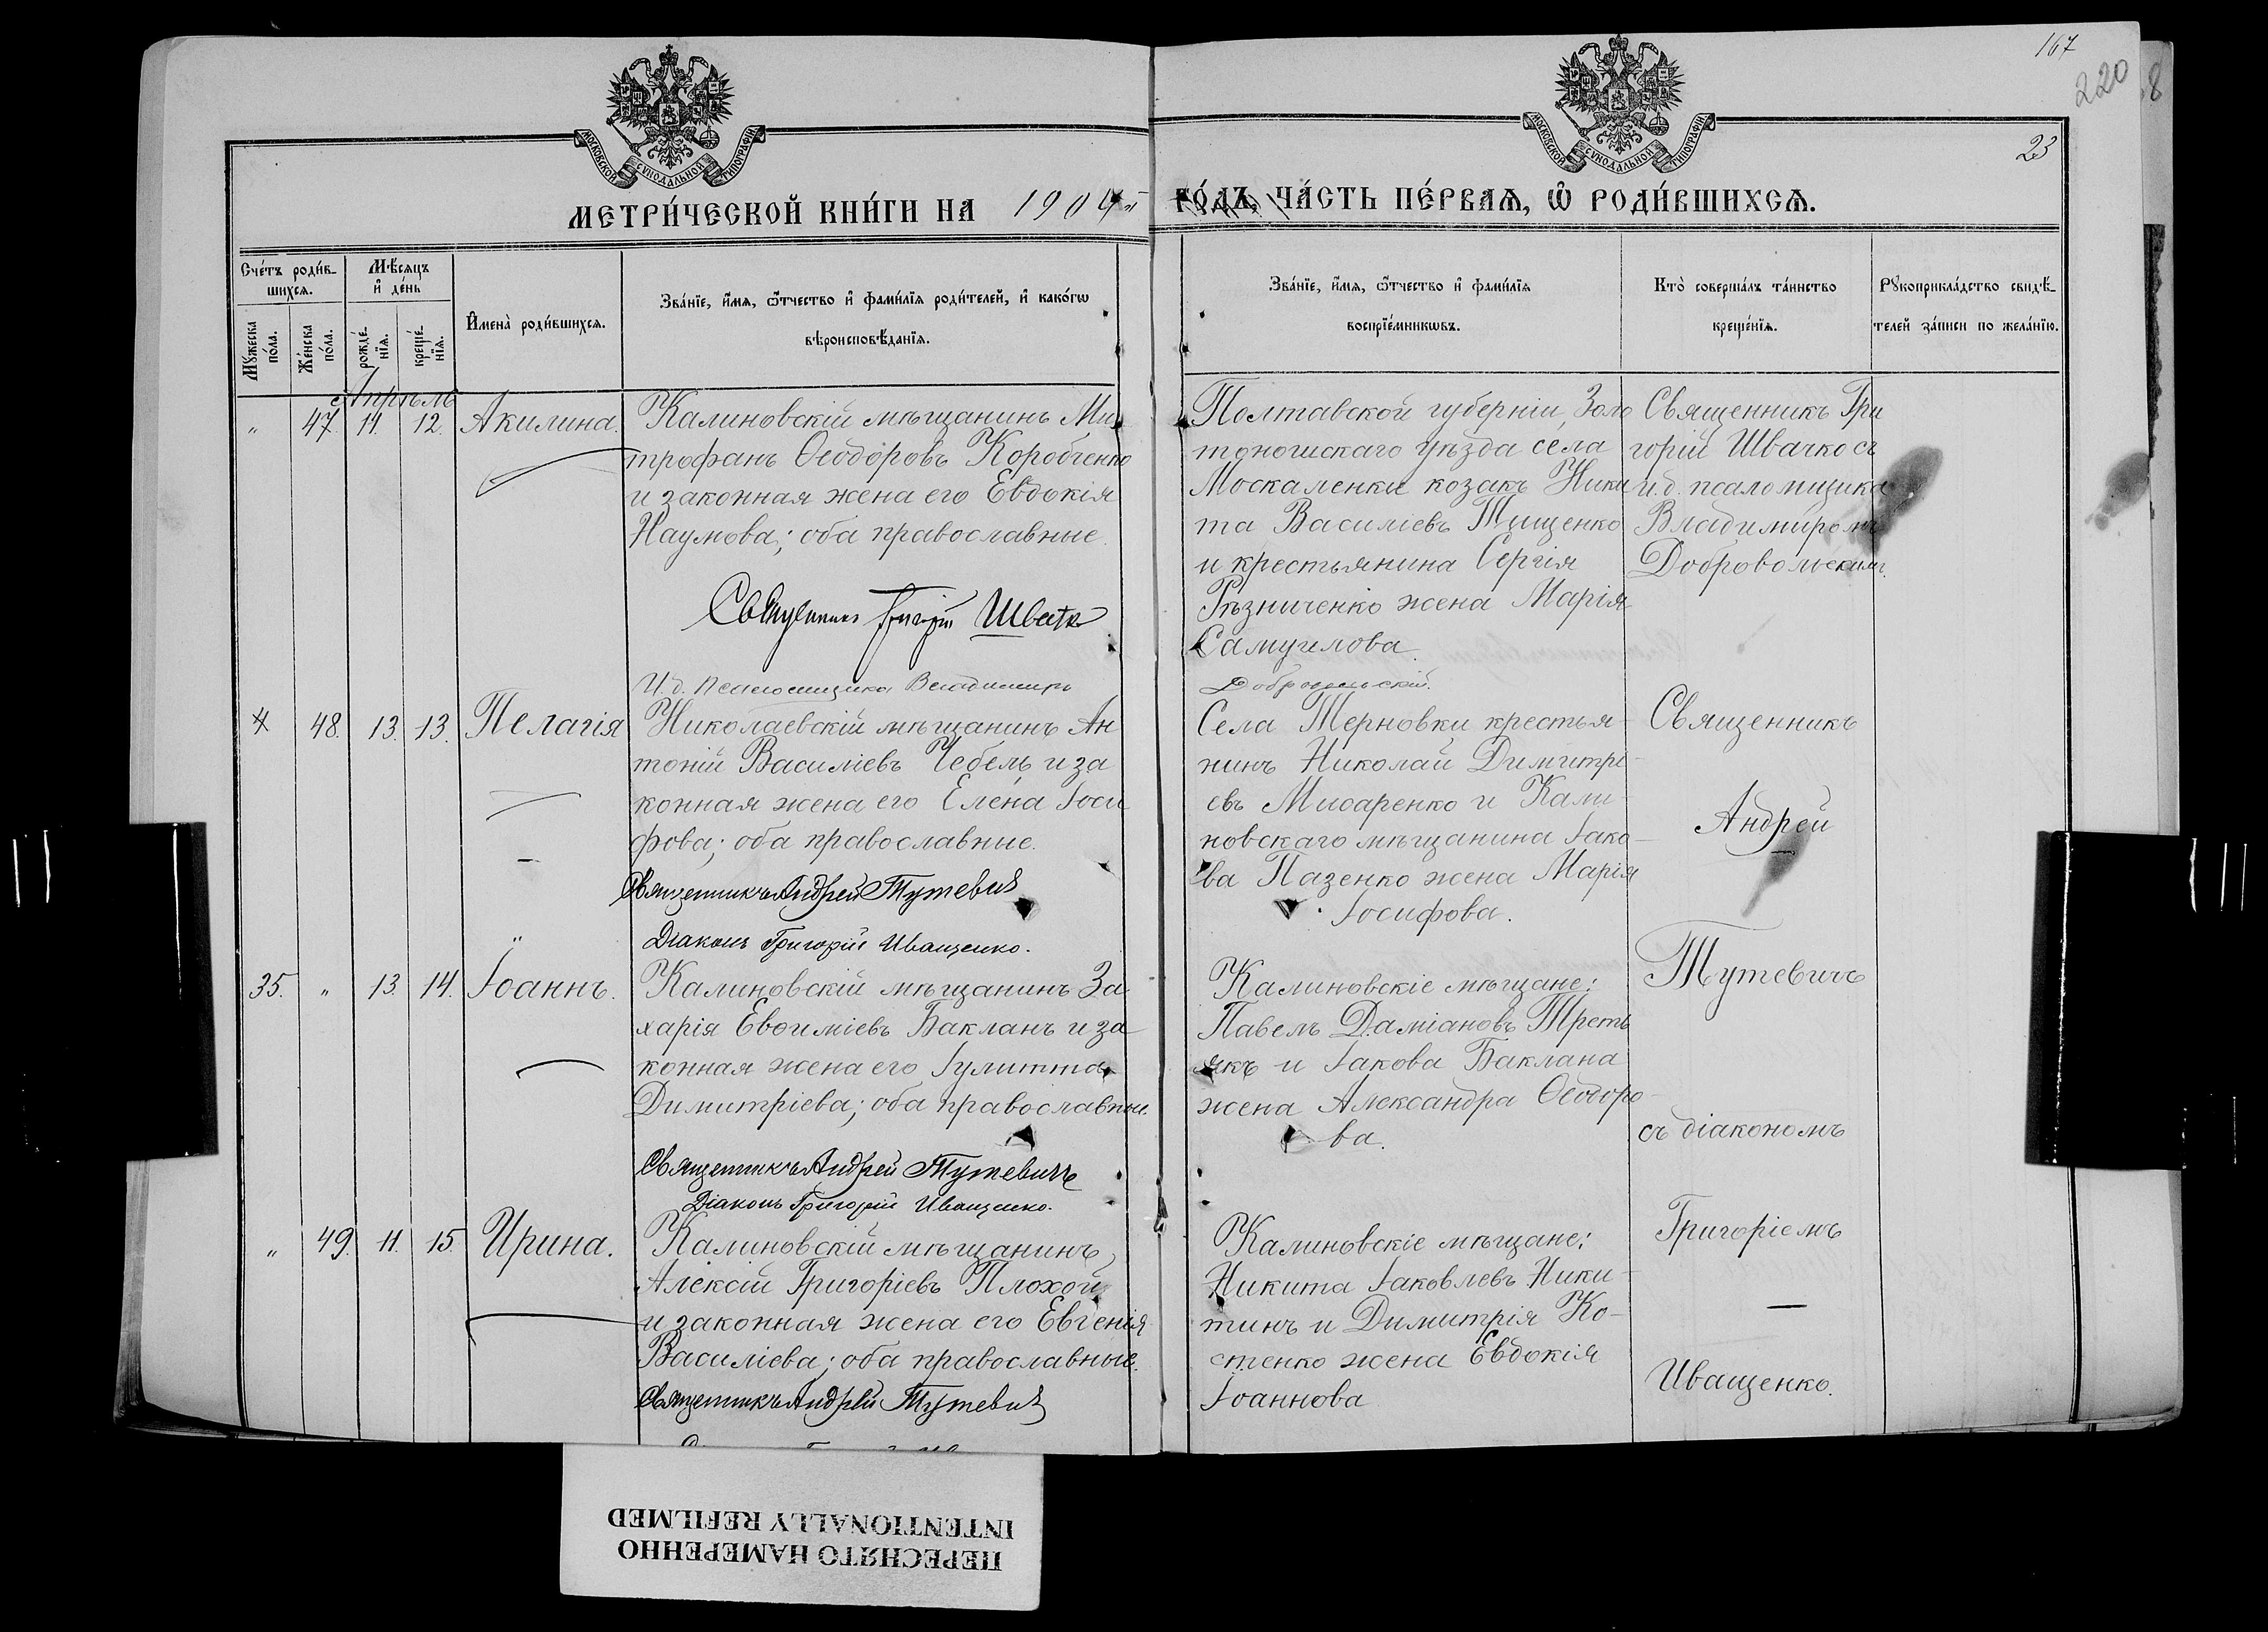 167
220
8
23
МОСКОВСКОЙ СУНОДАЛЬНОЙ ТИПОГРАФІИ
МОСКОВСКОЙ СУНОДАЛЬНОЙ ТИПОГРАФІИ
МЕТРИ́ЧЕСКОЙ КНИ́ГИ НА 1904й
ГО́ДЪ, ЧА́СТЬ ПЕ́РВАѦ, Ѽ РОДИ́ВШИХСѦ.
Сче́тъ роди́в-
шихсѧ.
Мꙋжеска по́ла.
Же́нска по́ла.
Мѣ́сяцъ
и҆ де́нь
рожде́-
нїѧ.
креще́-
нїѧ.
И҆мена̀ роди́вшихсѧ.
Зва́нїе, и҆́мѧ, ѻ҆́тчество и҆ фами́лїѧ роди́телей, и҆ како́гѡ
вѣроисповѣ́данїѧ.
Зва́нїе, и҆́мѧ, ѻ҆́тчество и҆ фами́лїѧ
воспрїе́мникѡвъ.
Кто̀ соверша́лъ та́инство
креще́нїѧ.
Рꙋкоприкла́дство свидѣ́-
телей за́писи по жела́нїю.
Апрѣль
„ 47. 11. 12. Акилина.
Калиновскій мѣщанинъ Ми-
трофанъ Ѳеодоровъ Коробченко
и законная жена его Евдокія
Наумова; оба православные.
Священникъ Григорій Швачко
И.д. Псаломщика Владимиръ
Добровольскій.
Полтавской губерніи, Золо
тоношскаго уѣзда села
Москаленки козакъ Ники
та Василіевъ Тищенко
и крестьянина Сергія
Рѣзниченко жена Марія
Самуилова.
Священникъ Гри
горій Швачко съ
и.д. псаломщика
Владимиромъ
Добровольскимъ.
48. 13. 13. Пелагія
Николаевскій мѣщанинъ Ан
тоній Василіевъ Чебель и за
конная жена его Елена Іоси
фова; оба православные.
Священникъ Андрей Тутевичъ
Діаконъ Григорій Иващенко.
Села Терновки крестья-
нинъ Николай Димитрі-
евъ Писаренко и Кали-
новскаго мѣщанина Іако-
ва Пазенко жена Марія
Іосифова.
Священникъ
Андрей
Тутевичъ
35. „ 13. 14. Іоаннъ.
Калиновскій мѣщанинъ За
харія Евѳиміевъ Бакланъ и за
конная жена его Іулитта
Димитріева; оба православные.
Священникъ Андрей Тутевичъ
Діаконъ Григорій Иващенко.
Калиновскіе мѣщане:
Павелъ Даміановъ Треть
якъ и Іакова Баклана
жена Александра Ѳеодоро-
ва.
съ діакономъ
Григоріемъ
Иващенко.
„ 49. 11. 15. Ирина.
Калиновскій мѣщанинъ
Алексій Григоріевъ Плохой
и законная жена его Евгенія
Василіева; оба православные.
Священникъ Андрей Тутевичъ
Калиновскіе мѣщане:
Никита Іаковлевъ Ники-
тинъ и Димитрія Ко-
стенко жена Евдокія
Іоаннова
ПЕРЕСНЯТО НАМЕРЕННО
INTENTIONALLY REFILMED